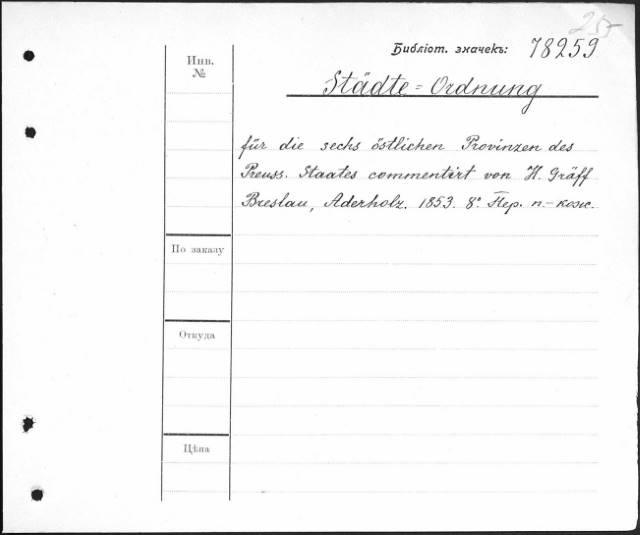 255
Библіот. значекъ: 78259
Инв.
№
Städte=Ordnung
für die sechs östlichen Provinzen des
Preuss. Staates commentirt von H. Gräff
Breslau, Aderholz. 1853. 8° Пер. п.-кож.
По заказу
Откуда
Цѣна